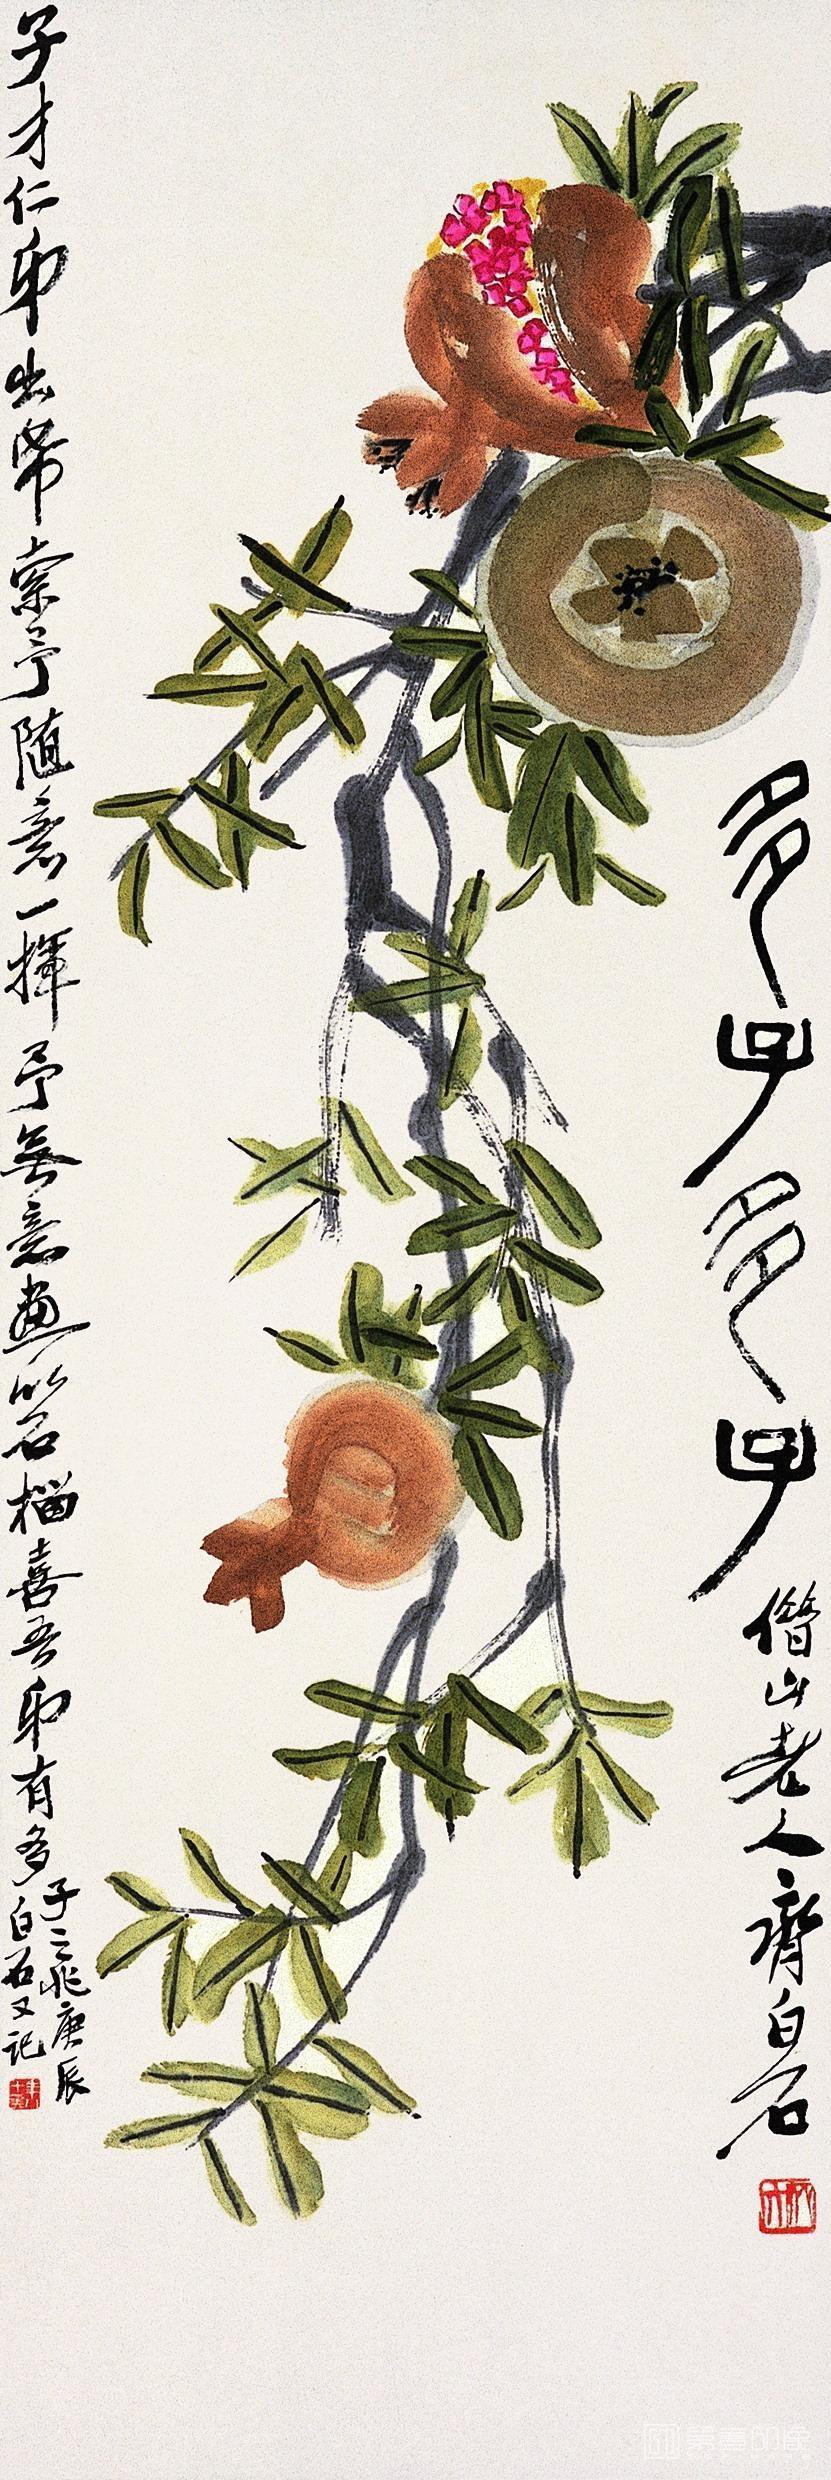 多子多子
借山老人齐白石
子才仁弟出帋索予随意一挥予无意画此石榴喜吾弟有多
子之兆庚辰
白石又记